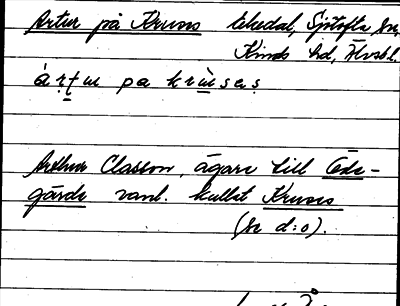 Artur på Kruses Ekedal, Sjötofta sn,
Kinds hd, Älvsb.l.
á r̥t̥ɯ pa krɯ̀sas̥
Arthur Classon, ägare till Öde-
gärde vanl. kallat Kruses
(se d:o).